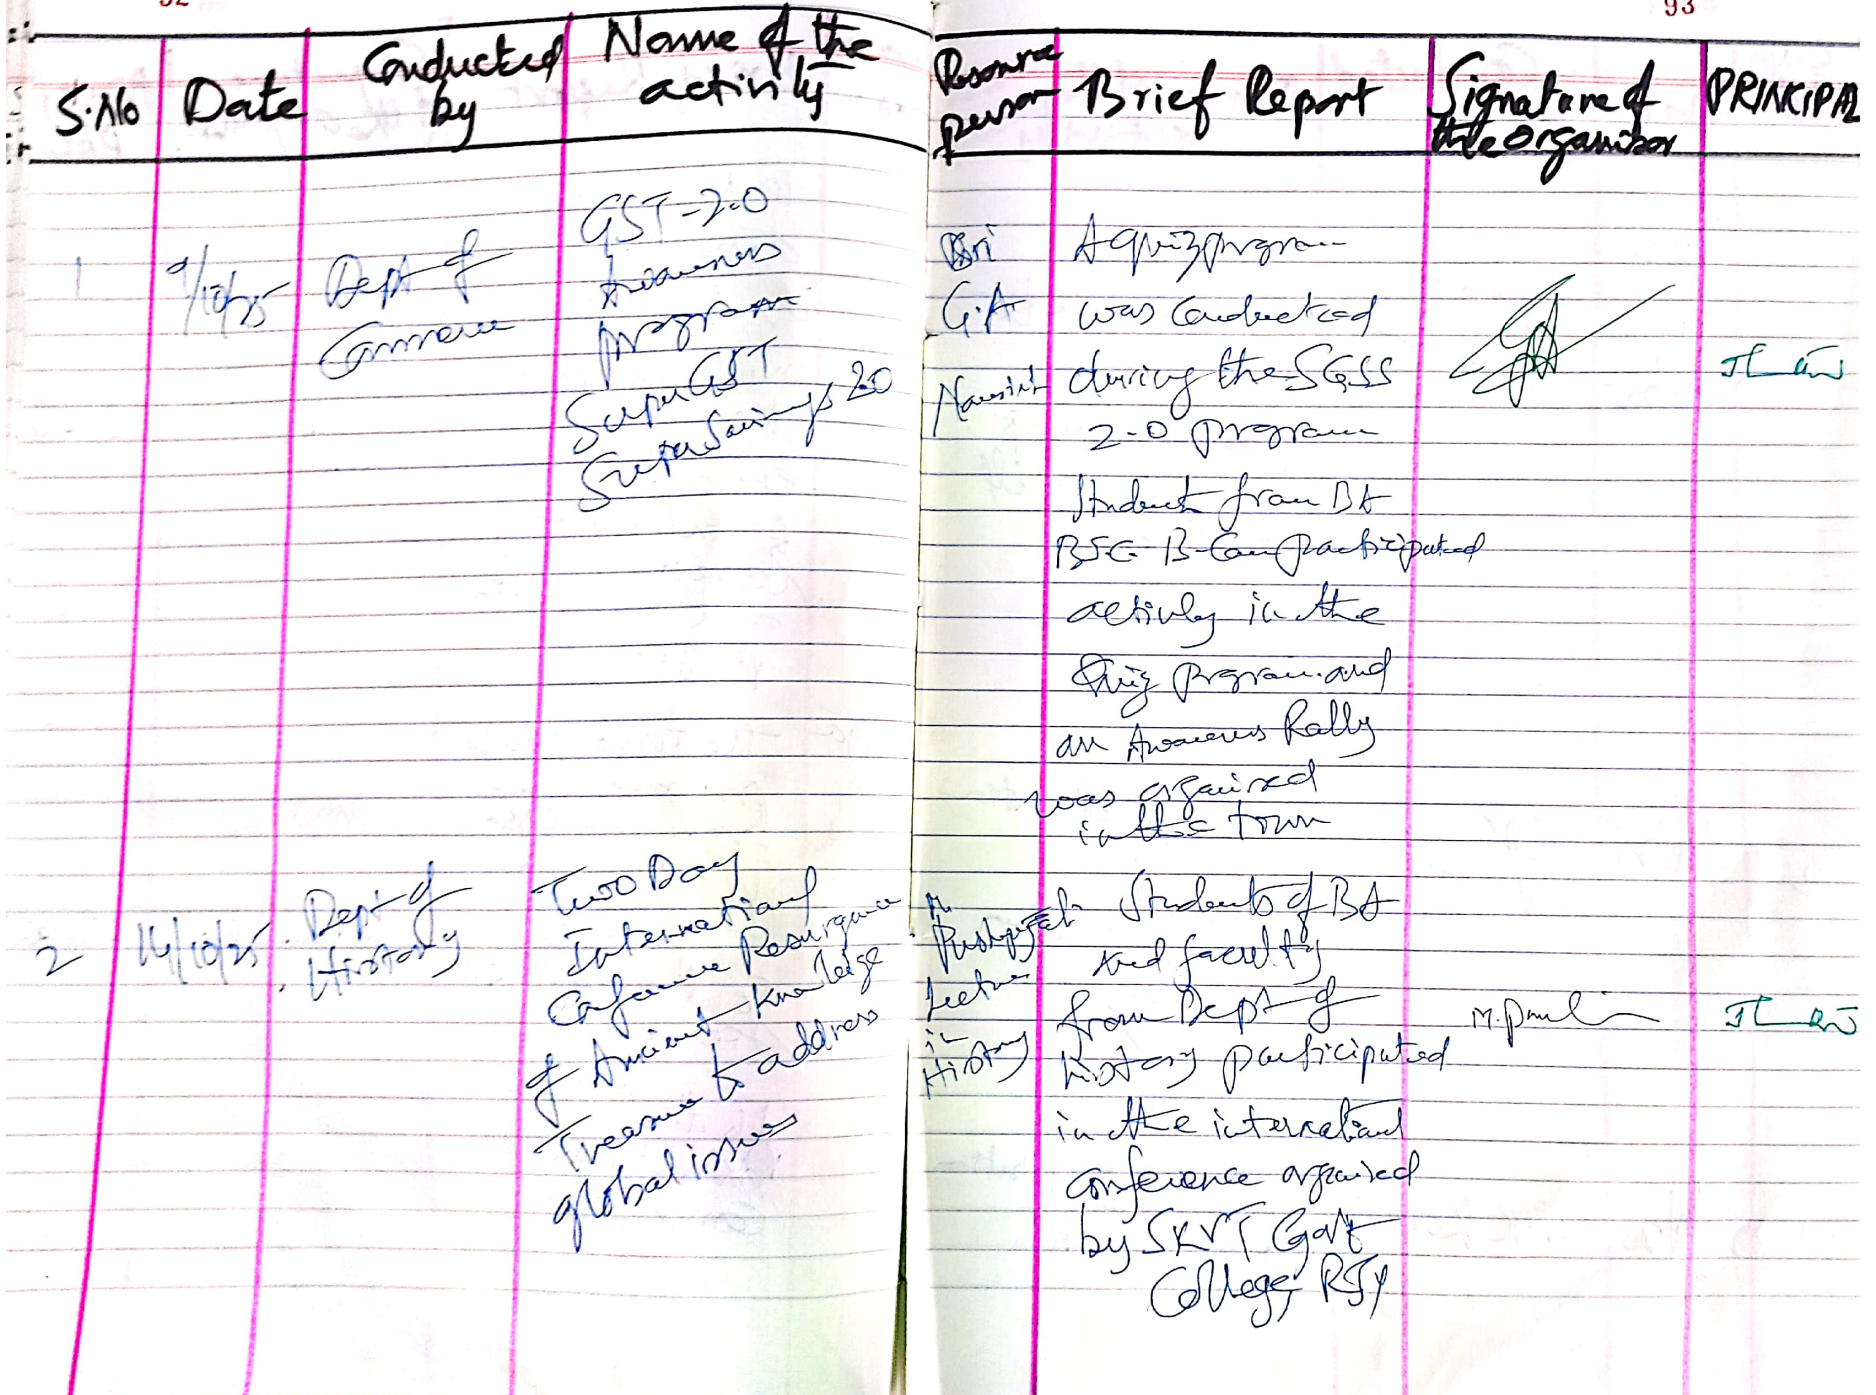 92
93
S.No
Date
Conducted
by
Name of the
activity
Resource
person
Brief Report
Signature of
the Organiser
PRINCIPAL
1
9/10/25
Dept of
Commerce
GST-2.0
Awareness
program
Super GST
Super Savings 2.0
Sri
G.A
A quiz program
was conducted
during the SGSS
2-0 program
Students from BA
BSC B-Com participated
actively in the
Quiz program and
an Awareness Rally
was organised
in the town
2
14/10/25
Dept of
History
Two Day
International
Conference Resurgence
of Ancient Knowledge
Treasure to address
global issues
M.
Lecturer
in
History
Students of BA
and faculty
from Dept of
history participated
in the international
conference organised
by SKVT Govt
College, RJY